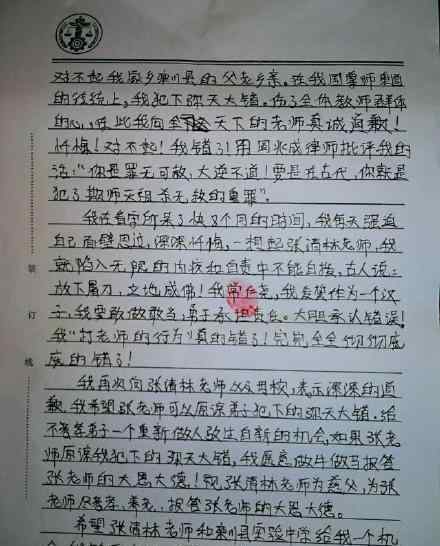 对不起我家乡栾川县的父老乡亲。在我国尊师重道
的传统上,我犯下弥天大错。伤了全体教师群体
的心,在此我向全天下的老师真诚道歉!
忏悔!对不起!我错了!用周兆成律师批评我的
话:“你是罪无可赦,大逆不道!要是在古代,你就是
犯了欺师灭祖杀无赦的重罪”。
我在看守所呆了快8个月的时间,我每天强迫
自己面壁思过,深深忏悔,一想起张清林老师,我
就陷入无限的内疚和自责中不能自拔,古人说:
放下屠刀,立地成佛!我常尧,我发誓作为一个汉
子,我要敢做敢当,勇于承担责任。大胆承认错误!
我“打老师的行为”真的错了!完完全全彻彻底
底的错了!
我再次向张清林老师以及母校,表示深深的道
歉,我希望张老师可以原谅弟子犯下的弥天大错。给
不孝弟子一个重新做人改过自新的机会,如果张老
师原谅我犯下的弥天大错,我愿意做牛做马报答
张老师的大恩大德!视张清林老师为慈父,为张
老师尽孝,养老,报答张老师的大恩大德。
希望张清林老师和栾川县实验中学给我一个机
装
订
线